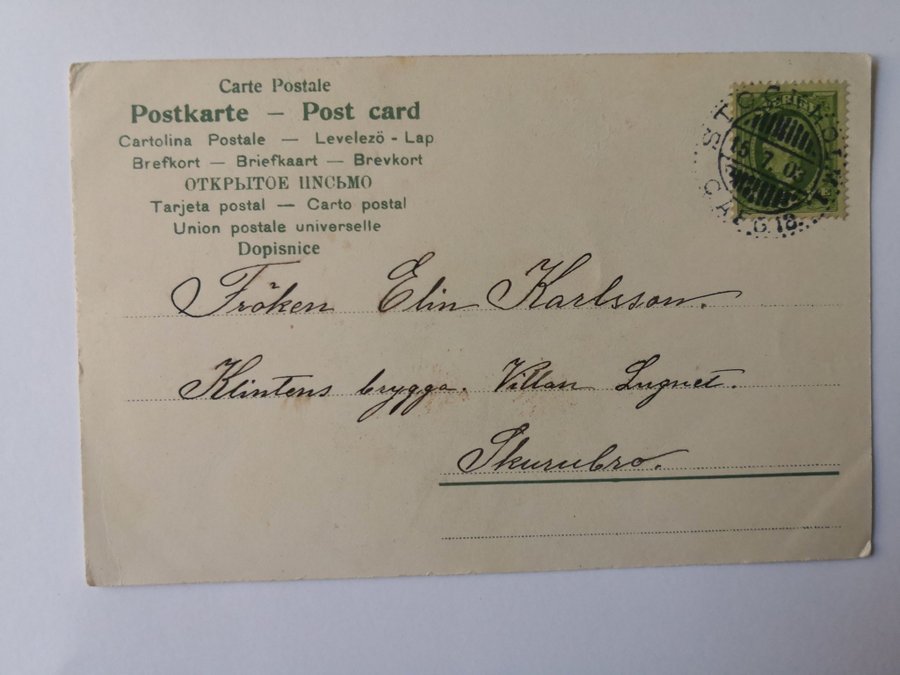 Carte Postale
Postkarte — Post card
Cartolina Postale — Levelezö-Lap
Brefkort — Briefkaart — Brevkort
ОТКРЫТОЕ ПИСЬМО
Tarjeta postal — Carto postal
Union postale universelle
Dopisnice
STOCKHOLM 1
15 7 03
AFG. 18
Fröken Elin Karlsson.
Klintens brygga. Villan Lugnet.
Skurubro.